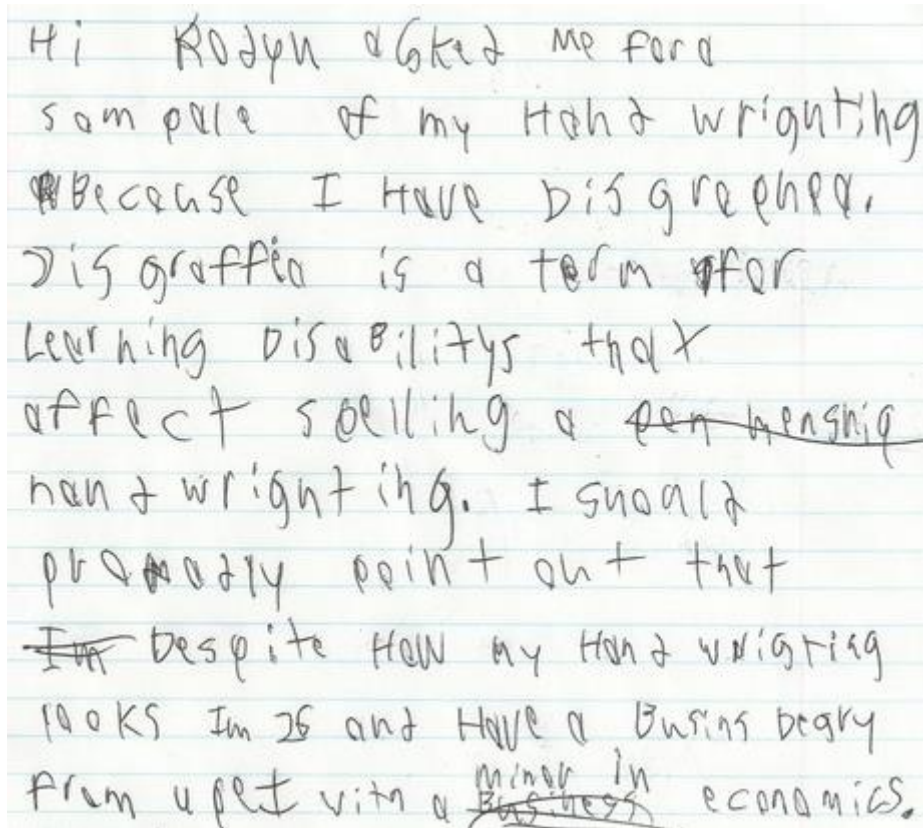 Hi Rodyn asked me for a
sam pale of my Hand wrighting
Because I Have Disgraphea.
Disgraffia is a term for
Learning DisaBilitys that
affect spelling a pen menship
hand wrighting. I shoald
probadly point out that
Im Despite How my Hand wrigting
looks Im 26 and Have a Busins Degry
from upei with a minor in Business economics.